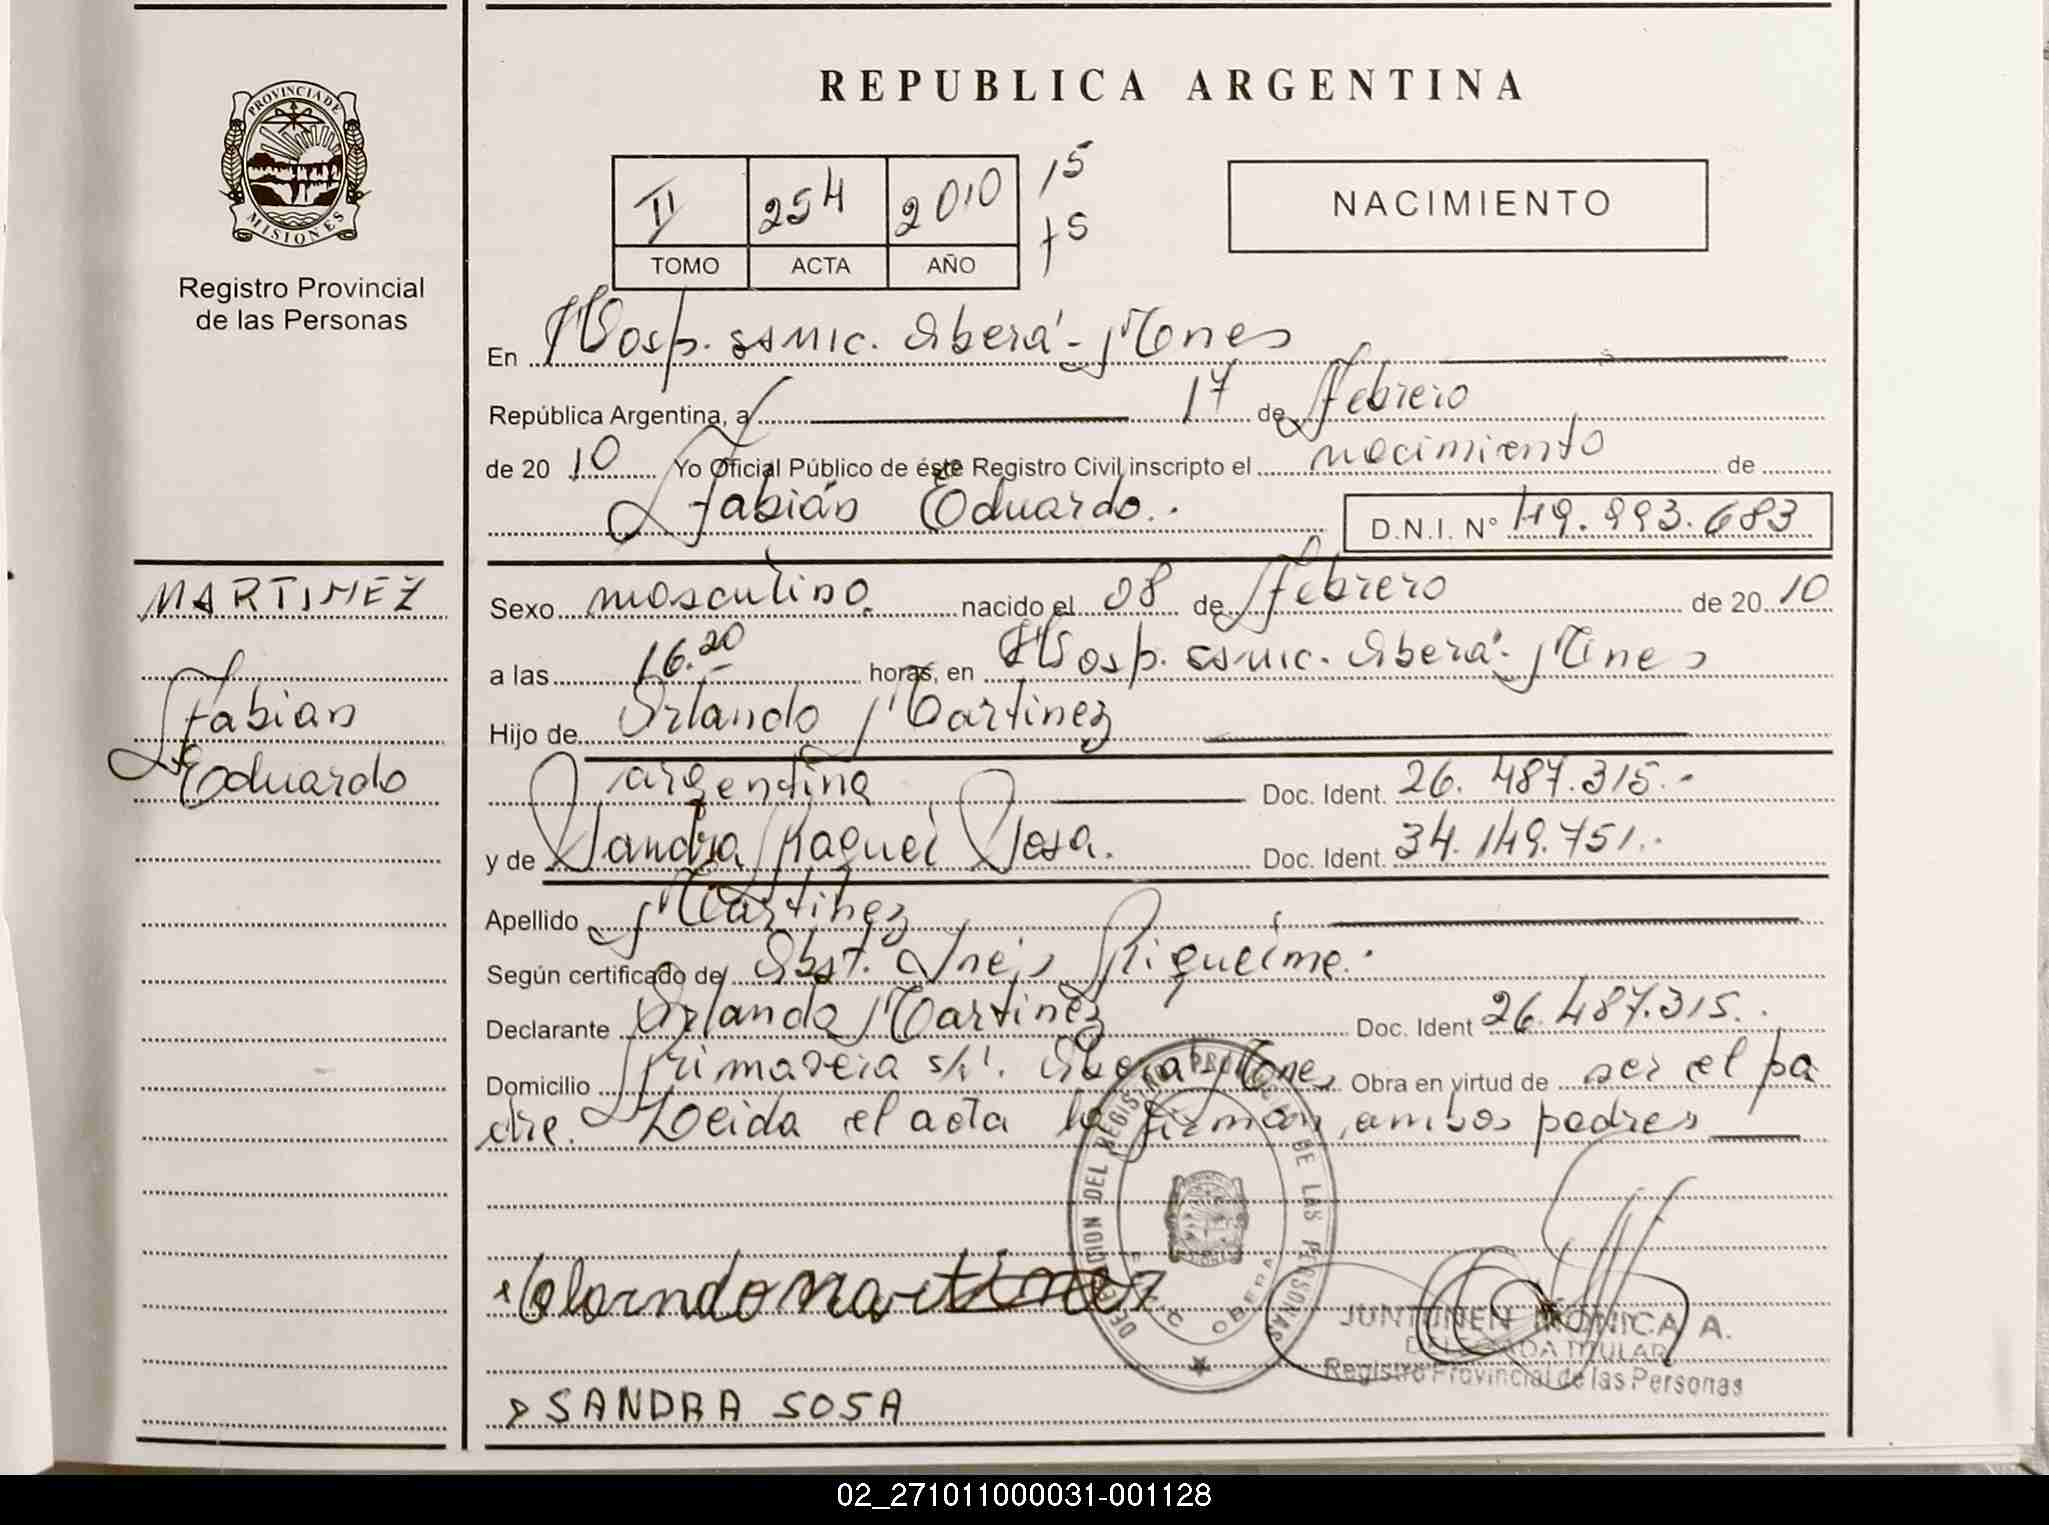 PROVINCIA DE
MISIONES
Registro Provincial
de las Personas
MARTINEZ
Fabián
Eduardo
REPUBLICA ARGENTINA
II 254 2010 15
TOMO ACTA AÑO 75
NACIMIENTO
En Hosp. SSMIC. Oberá - Mones
República Argentina, a 17 de Febrero
de 20 10 Yo Oficial Público de éste Registro Civil inscripto el nacimiento de
Fabián Eduardo.. D.N.I. N° 49.993.683
Sexo masculino. nacido el 08 de Febrero de 20 10
a las 16.20 horas, en Hosp. SSMIC. Oberá - Mnes
Hijo de Orlando Martinez
argentina Doc. Ident. 26.487.315.-
y de Sandra Raquel Sosa. Doc. Ident. 34.149.751..
Apellido Martinez
Según certificado de Obst. Inés Riquelme.
Declarante Orlando Martinez Doc. Ident 26.487.315..
Domicilio Primavera s/n. Oberá Mones Obra en virtud de ser el pa
dre. Leida el acta la firman ambos padres
DELEGACION DEL REGISTRO PROVINCIAL DE LAS PERSONAS
OBERA
x Olorndo Martinez
JUNTUNEN MONICA A.
DELEGADA TITULAR
Registro Provincial de las Personas
x SANDRA SOSA
02_271011000031-001128